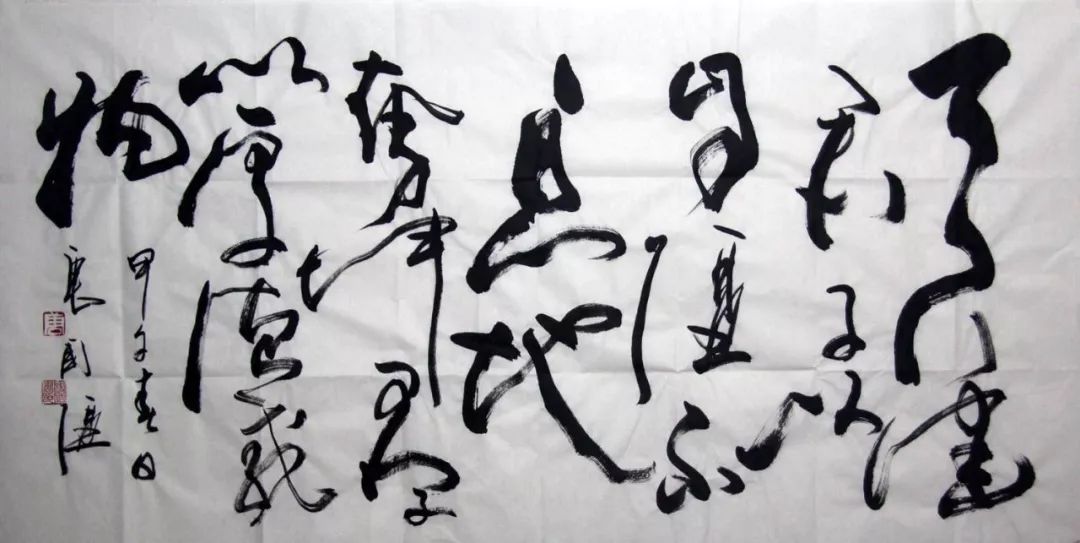 天行健
君子以
自强不
息地
势坤君子
以厚德载
物
甲午春日
唐国强